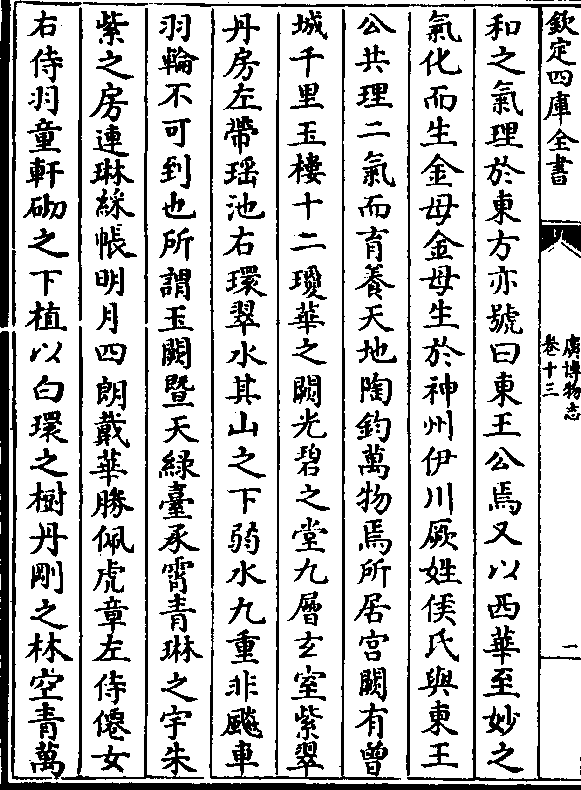 欽定四庫全書
廣博物志
卷十三
二
和之氣理於東方亦號曰東王公焉又以西華至妙之
氣化而生金母金母生於神州伊川厥姓侯氏與東王
公共理二氣而育養天地陶鈞萬物焉所居宮闕有曾
城千里玉樓十二瓊華之闕光碧之堂九層玄室紫翠
丹房左帶瑶池右環翠水其山之下弱水九重非飈車
羽輪不可到也所謂玉闕暨天緑臺承霄青琳之宇朱
紫之房連琳綵帳明月四朗戴華勝佩虎章左侍僊女
右侍羽童軒砌之下植以白環之樹丹剛之林空青萬